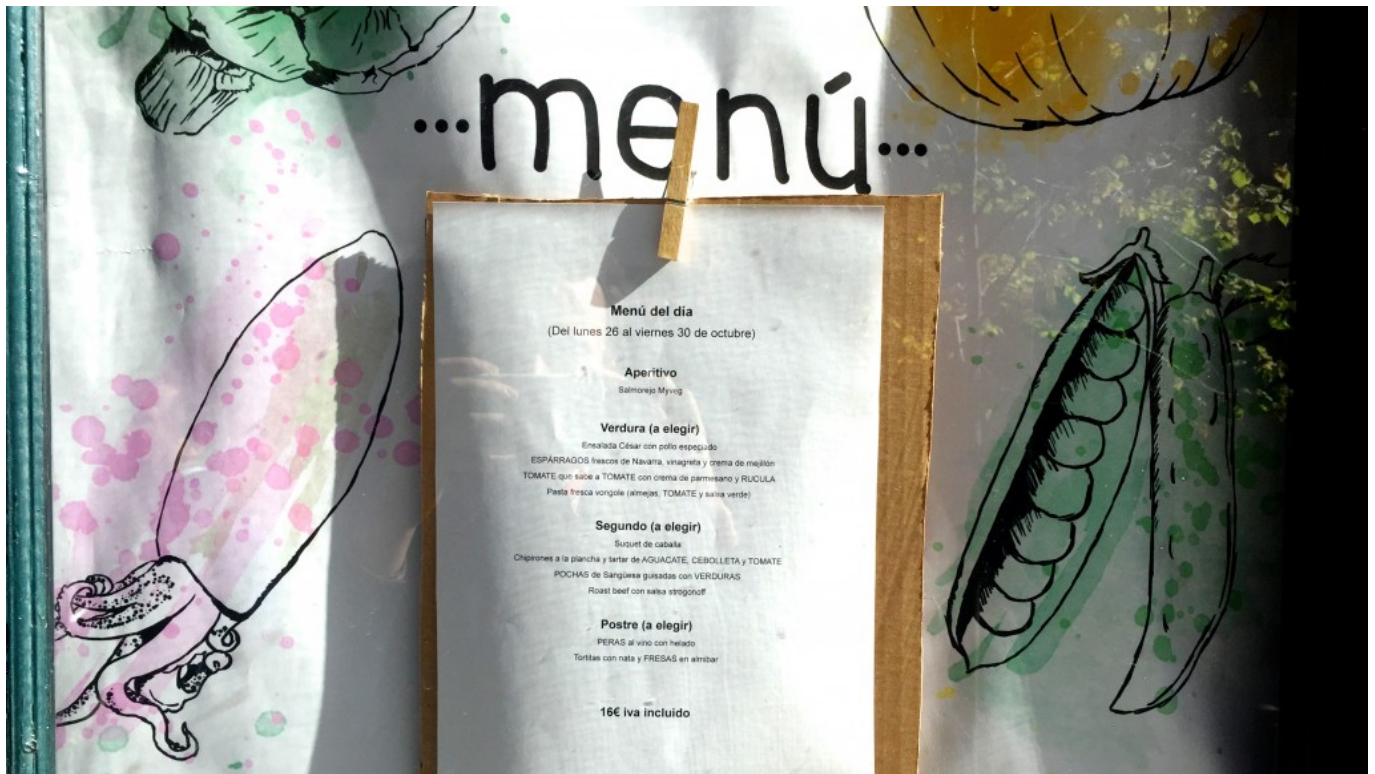 ...menú...
Menú del día
(Del lunes 26 al viernes 30 de octubre)
Aperitivo
Salmorejo Myveg
Verdura (a elegir)
Ensalada César con pollo especiado
ESPÁRRAGOS frescos de Navarra, vinagreta y crema de mejillón
TOMATE que sabe a TOMATE con crema de parmesano y RUCULA
Pasta fresca vongole (almejas, TOMATE y salsa verde)
Segundo (a elegir)
Suquet de caballa
Chipirones a la plancha y tartar de AGUACATE, CEBOLLETA y TOMATE
POCHAS de Sangüesa guisadas con VERDURAS
Roast beef con salsa strogonoff
Postre (a elegir)
PERAS al vino con helado
Tortitas con nata y FRESAS en almibar
16€ iva incluido